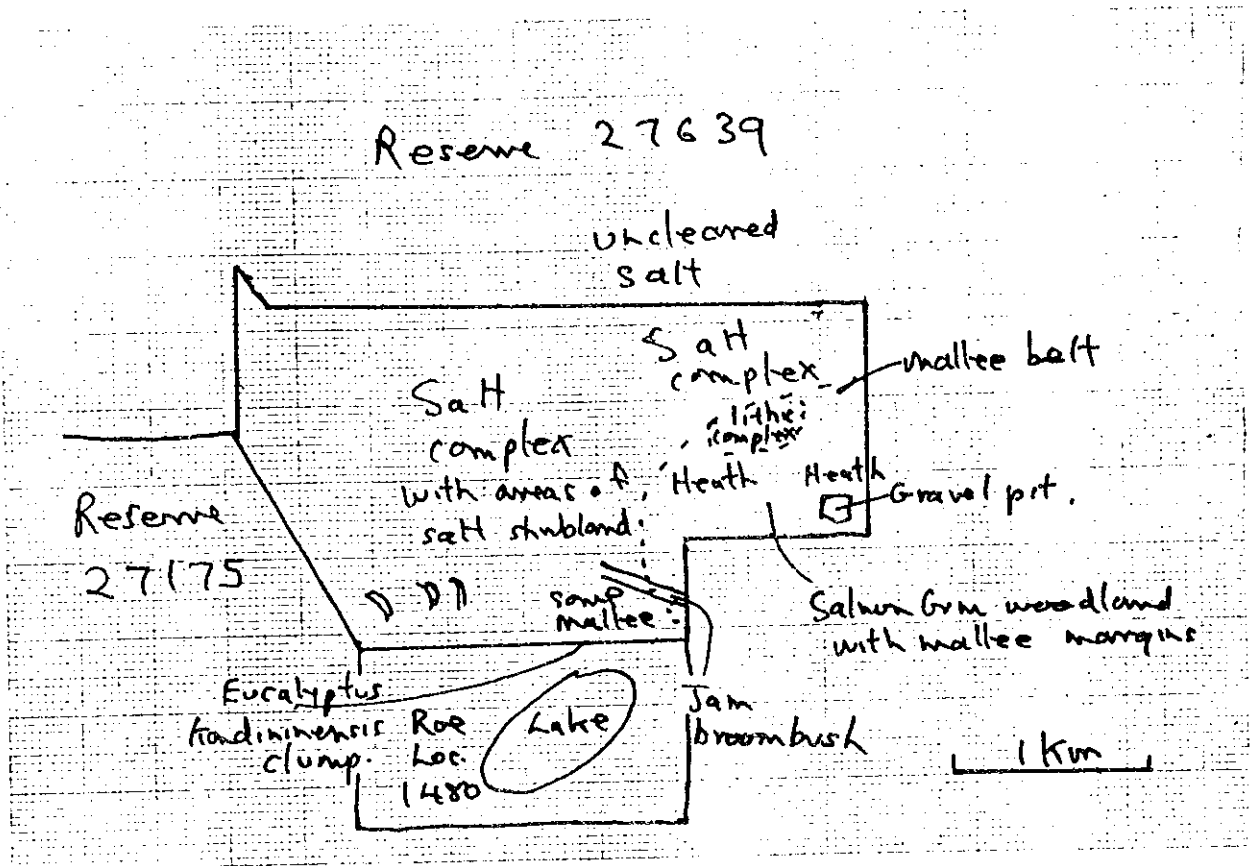 Reserve 27639
uncleared
salt
Salt
complex
mallee belt
Salt
complex
with areas of
salt shrubland
lithic
complex
Heath
Heath
Gravel pit.
Reserve
27175
some
mallee
Salmon Gum woodland
with mallee margins
Eucalyptus
kondininensis
clump.
Roe
Loc.
1480
Lake
Jam
broombush
1 Km